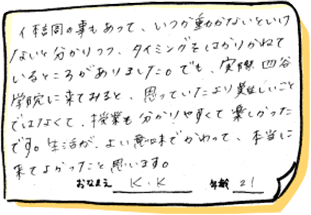 イ桔同の事もあって、いつか動かないといけ
ないと分かりつつ、タイミングをはかりかねて
いるところがありました。でも、実際 四谷
学院に来てみると、思っていたより難しいこと
ではなくて、授業も分かりやすくて楽しかった
です。生活が、よい意味でかわって、本当に
来てよかったと思います。
おなまえ K.K 年齢 21